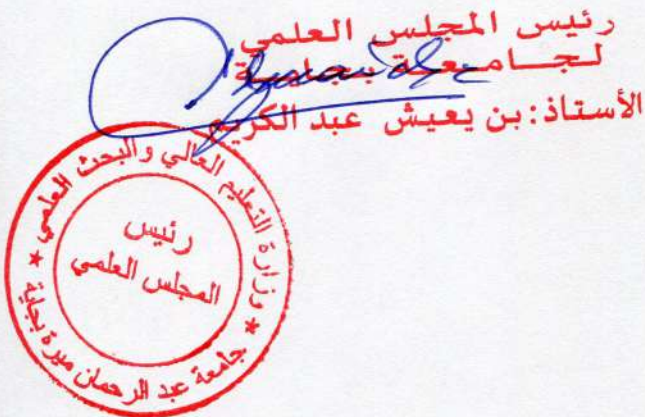 رئيس المجلس العلمي
لجامعة بجاية
الأستاذ: بن يعيش عبد الكريم
وزارة التعليم العالي والبحث العلمي
رئيس
المجلس العلمي
جامعة عبد الرحمان ميرة بجاية